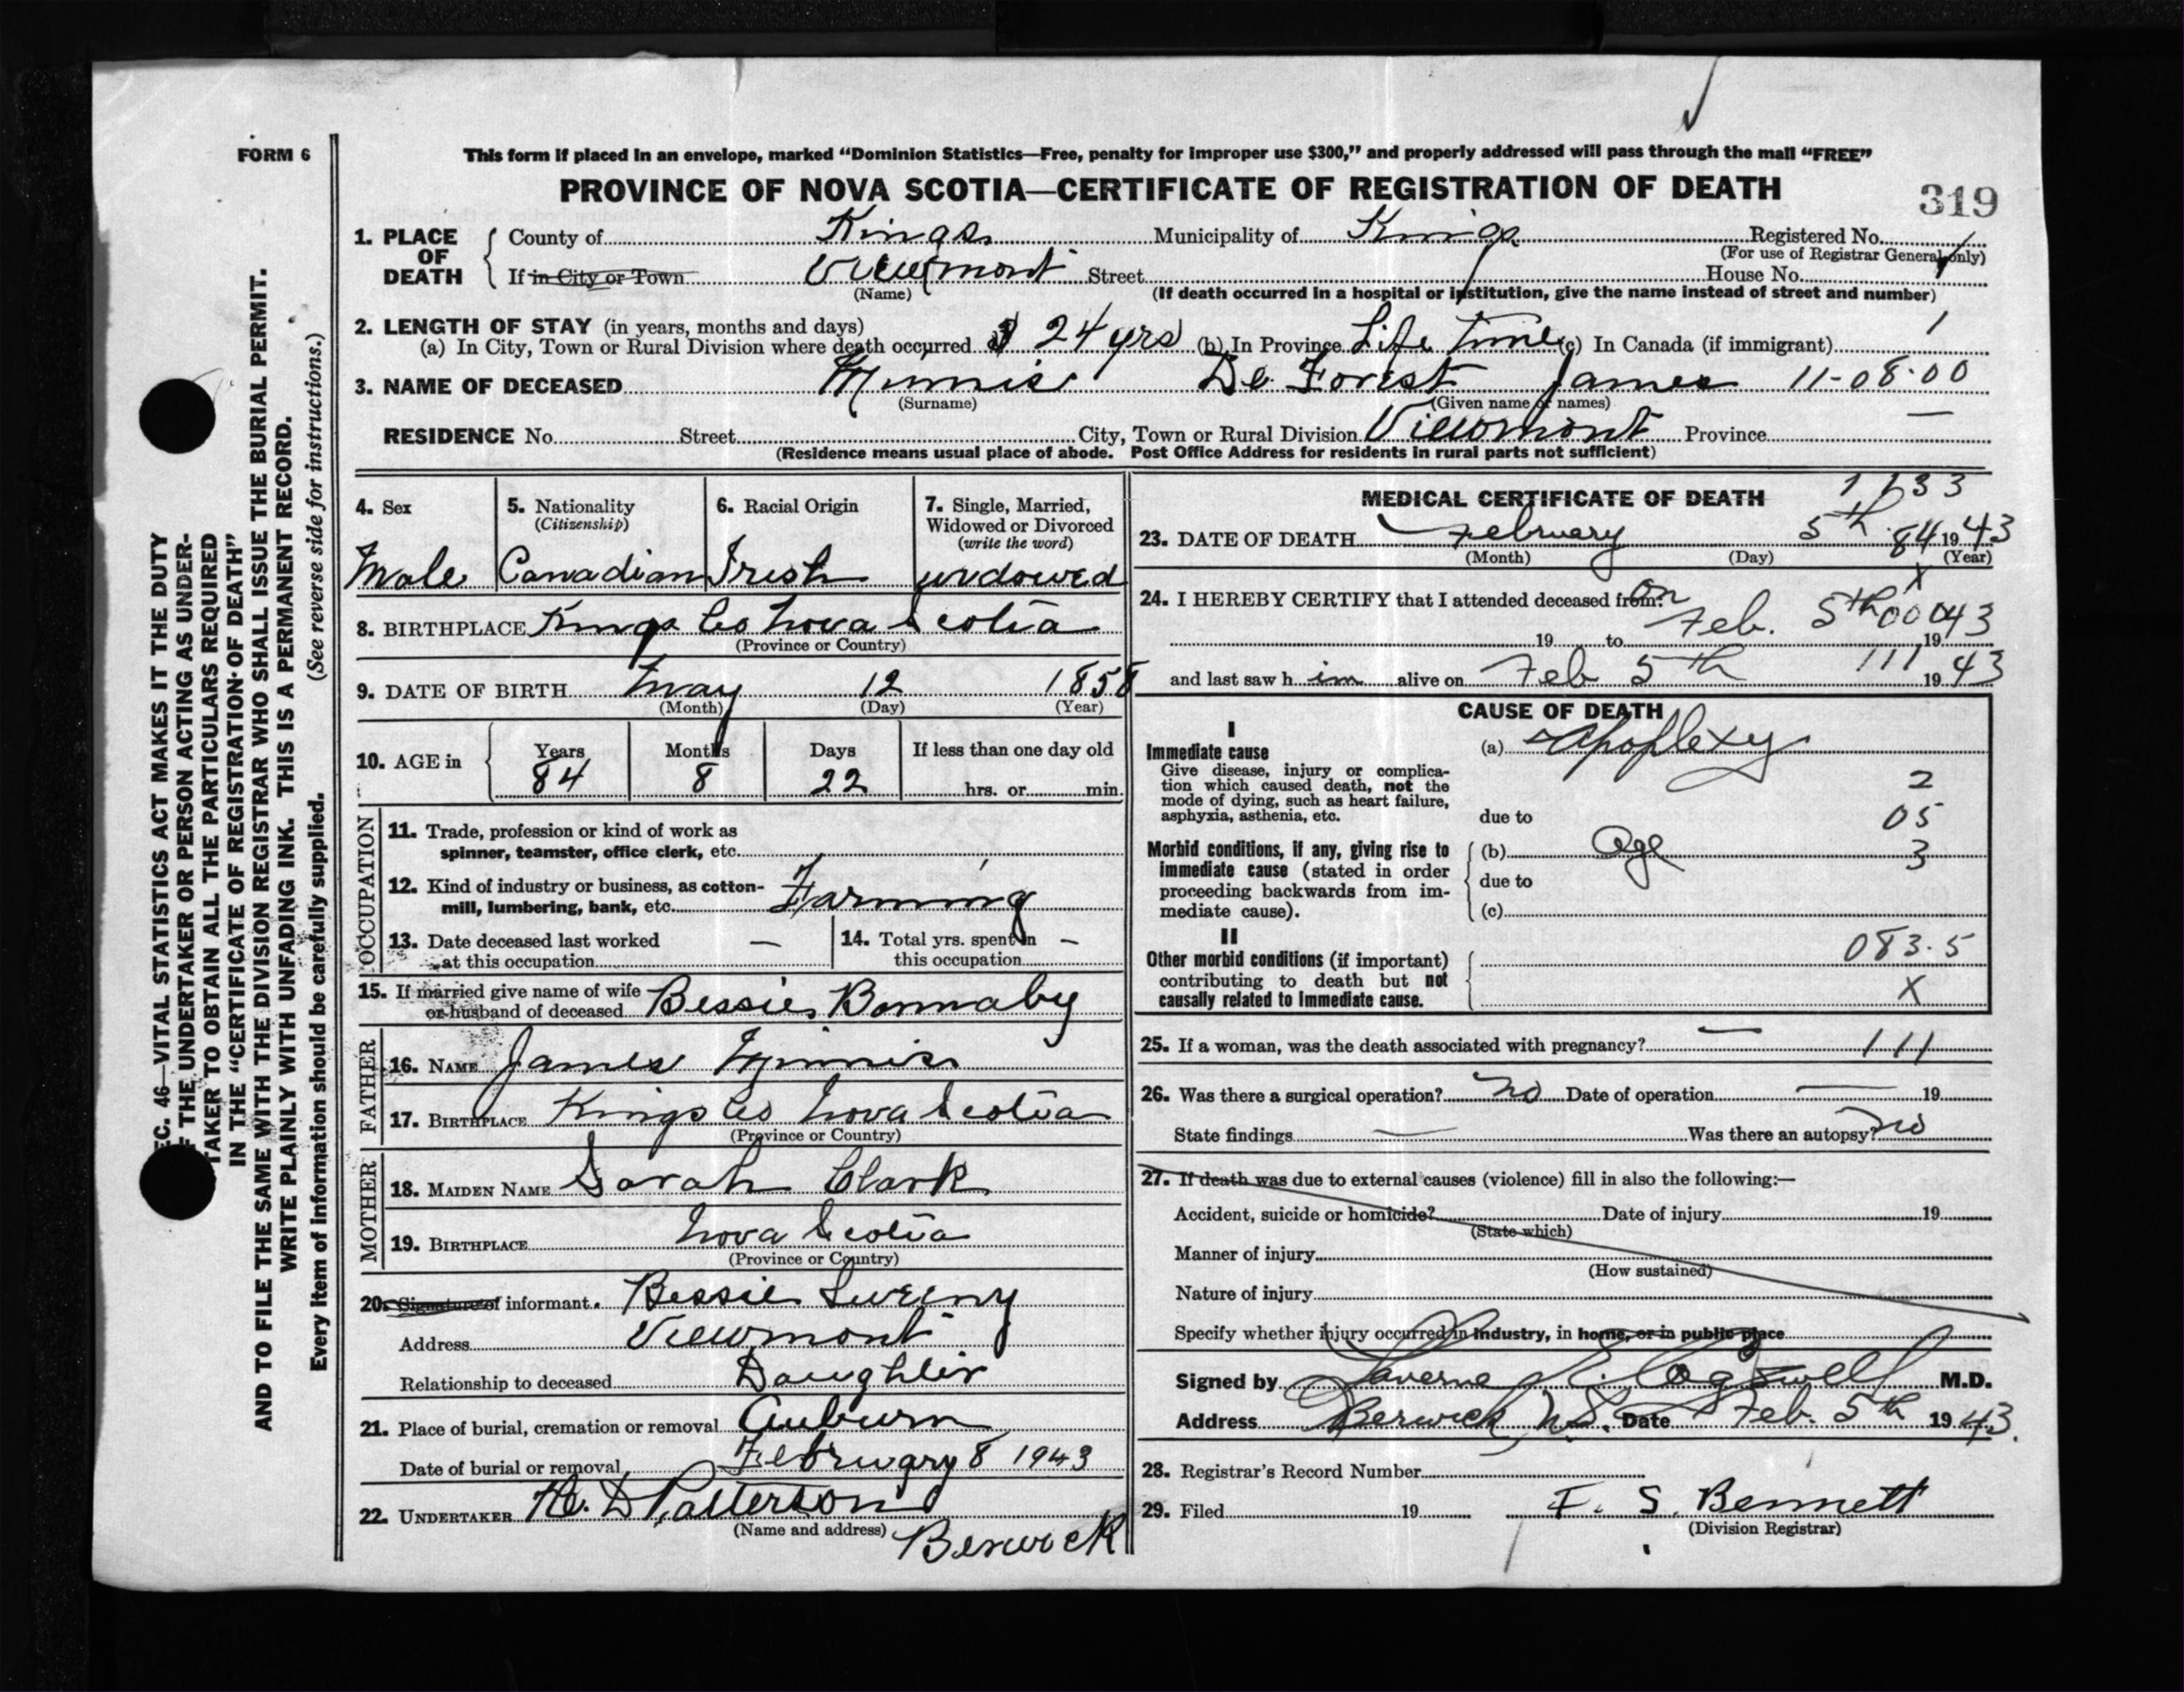 FORM 6
This form if placed in an envelope, marked “Dominion Statistics—Free, penalty for improper use $300,” and properly addressed will pass through the mail “FREE”
PROVINCE OF NOVA SCOTIA—CERTIFICATE OF REGISTRATION OF DEATH
319
1. PLACE OF DEATH
County of Kings Municipality of Kings Registered No.
(For use of Registrar General only)
If in City or Town Viewmont Street House No.
(Name) (If death occurred in a hospital or institution, give the name instead of street and number)
2. LENGTH OF STAY (in years, months and days)
(a) In City, Town or Rural Division where death occurred 24 yrs (b) In Province Life Time (c) In Canada (if immigrant) 1
3. NAME OF DECEASED Minnis De Forest James 11-08-00
(Surname) (Given name or names)
RESIDENCE No. Street City, Town or Rural Division Viewmont Province —
(Residence means usual place of abode. Post Office Address for residents in rural parts not sufficient)
4. Sex
Male
5. Nationality
(Citizenship)
Canadian
6. Racial Origin
Irish
7. Single, Married,
Widowed or Divorced
(write the word)
widowed
8. BIRTHPLACE Kings Co Nova Scotia
(Province or Country)
9. DATE OF BIRTH May 12 1858
(Month) (Day) (Year)
10. AGE in
Years Months Days If less than one day old
84 8 22 hrs. or min.
OCCUPATION
11. Trade, profession or kind of work as
spinner, teamster, office clerk, etc.
12. Kind of industry or business, as cotton-
mill, lumbering, bank, etc. Farming
13. Date deceased last worked —
at this occupation
14. Total yrs. spent in —
this occupation
15. If married give name of wife
or husband of deceased Bessie Bonnaby
FATHER
16. NAME James Minnis
17. BIRTHPLACE Kings Co Nova Scotia
(Province or Country)
MOTHER
18. MAIDEN NAME Sarah Clark
19. BIRTHPLACE Nova Scotia
(Province or Country)
20. Signature of informant. Bessie Sweeny
Address Viewmont
Relationship to deceased Daughter
21. Place of burial, cremation or removal Auburn
Date of burial or removal February 8 1943
22. UNDERTAKER H. D Patterson
(Name and address) Berwick
MEDICAL CERTIFICATE OF DEATH 1133
23. DATE OF DEATH February 5th 84 1943
(Month) (Day) (Year)
24. I HEREBY CERTIFY that I attended deceased from: on
19 to Feb. 5th 00 04 1943
and last saw him alive on Feb 5th 111 1943
CAUSE OF DEATH
I
Immediate cause
Give disease, injury or complica-
tion which caused death, not the
mode of dying, such as heart failure,
asphyxia, asthenia, etc.
(a) Apoplexy
2
due to 05
Morbid conditions, if any, giving rise to
immediate cause (stated in order
proceeding backwards from im-
mediate cause).
(b) Age 3
due to
(c)
II
Other morbid conditions (if important)
contributing to death but not
causally related to immediate cause.
083.5
X
25. If a woman, was the death associated with pregnancy? — 111
26. Was there a surgical operation? no Date of operation — 19
State findings — Was there an autopsy? no
27. If death was due to external causes (violence) fill in also the following:—
Accident, suicide or homicide? Date of injury 19
(State which)
Manner of injury
(How sustained)
Nature of injury
Specify whether injury occurred in industry, in home, or in public place
Signed by Laverne E. Cogswell M.D.
Address Berwick, N.S. Date Feb. 5th 1943.
28. Registrar's Record Number
29. Filed 19 F. S. Bennett
(Division Registrar)
EC. 46—VITAL STATISTICS ACT MAKES IT THE DUTY
F THE UNDERTAKER OR PERSON ACTING AS UNDER-
TAKER TO OBTAIN ALL THE PARTICULARS REQUIRED
IN THE “CERTIFICATE OF REGISTRATION OF DEATH”
AND TO FILE THE SAME WITH THE DIVISION REGISTRAR WHO SHALL ISSUE THE BURIAL PERMIT.
WRITE PLAINLY WITH UNFADING INK. THIS IS A PERMANENT RECORD.
Every item of information should be carefully supplied. (See reverse side for instructions.)